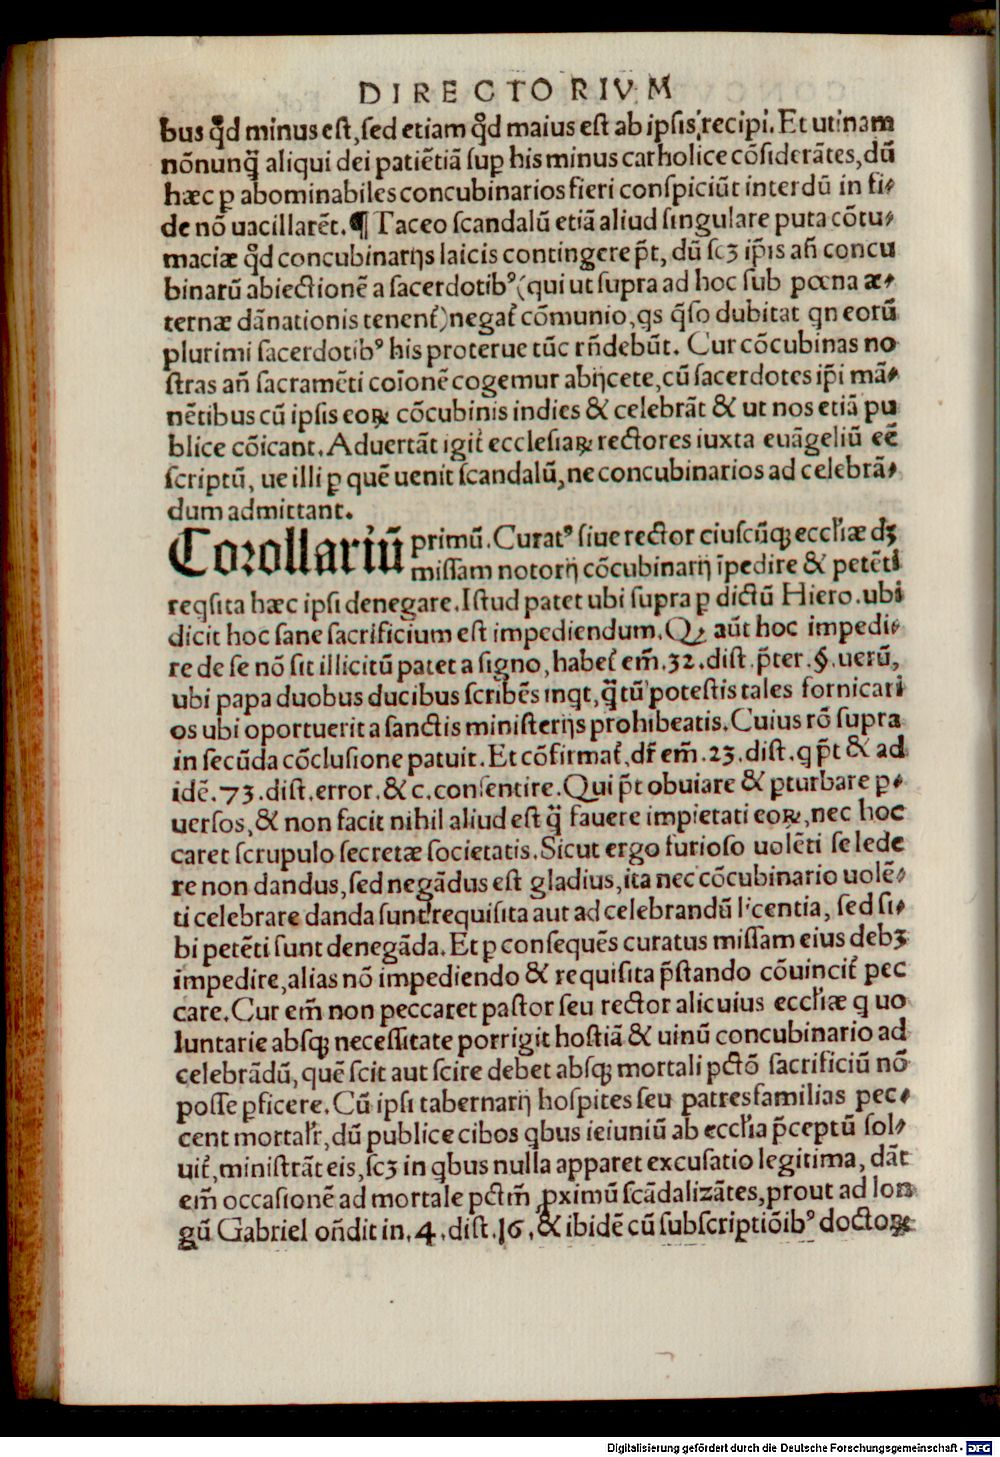 DIRECTORIVM
bus qđ minus est, sed etiam qđ maius est ab ipsis recipi. Et utinam
nõnunq̃ aliqui dei patiẽtiã suꝑ his minus catholice cõsiderãtes, dũ
hæc ꝑ abominabiles concubinarios fieri conspiciũt interdũ in fi⸗
de nõ uacillarẽt. ¶ Taceo scandalũ etiã aliud singulare puta cõtu⸗
maciæ qđ concubinarijs laicis contingere p̃t, dũ scꝫ ip̃is añ concu
binarũ abiectionẽ a sacerdotibꝰ (qui ut supra ad hoc sub pœna æ⸗
ternæ dãnationis tenent̃) negat̃ cõmunio, qs q̃so dubitat qn eorũ
plurimi sacerdotibꝰ his proterue tũc rñdebũt. Cur cõcubinas no
stras añ sacramẽti coĩonẽ cogemur abijcete, cũ sacerdotes ip̃i mã⸗
nẽtibus cũ ipsis eoꝝ cõcubinis indies & celebrãt & ut nos etiã pu
blice cõicant. Aduertãt igit̃ ecclesiaꝝ rectores iuxta euãgeliũ eẽ
scriptũ, ue illi ꝑ quẽ uenit scandalũ, ne concubinarios ad celebrã⸗
dum admittant.
Corollariũ primũ. Curatꝰ siue rector ciuscũqꝫ eccl̃iæ dꝫ
missam notorij cõcubinarij ĩpedire & petẽti
reqsita hæc ipsi denegare. Istud patet ubi supra ꝑ dictũ Hiero. ubi
dicit hoc sane sacrificium est impediendum. Qꝫ aũt hoc impedi⸗
re de se nõ sit illicitũ patet a signo, habet̃ em̃. 32. dist. p̃ter. §. uerũ,
ubi papa duobus ducibus scribẽs inqt, q̃tũ potestis tales fornicari
os ubi oportuerit a sanctis ministerijs prohibeatis. Cuius rõ supra
in secũda cõclusione patuit. Et cõfirmat̃, dr̃ em̃. 23. dist. q p̃t & ad
idẽ. 73. dist. error. & c. consentire. Qui p̃t obuiare & ꝑturbare ꝑ⸗
uersos, & non facit nihil aliud est q̃ fauere impietati eoꝝ, nec hoc
caret scrupulo secretæ societatis. Sicut ergo furioso uolẽti se lede
re non dandus, sed negãdus est gladius, ita nec cõcubinario uolẽ⸗
ti celebrare danda sunt requisita aut ad celebrandũ licentia, sed si⸗
bi petẽti sunt denegãda. Et ꝑ consequẽs curatus missam eius debꝫ
impedire, alias nõ impediendo & requisita p̃stando cõuincit̃ pec
care. Cur em̃ non peccaret pastor seu rector alicuius eccl̃iæ q uo
luntarie absqꝫ necessitate porrigit hostiã & uinũ concubinario ad
celebrãdũ, quẽ scit aut scire debet absqꝫ mortali pctõ sacrificiũ nõ
posse ꝑficere. Cũ ipsi tabernarij hospites seu patresfamilias pec⸗
cent mortalr̃, dũ publice cibos qbus ieiuniũ ab eccl̃ia p̃ceptũ sol⸗
uit̃, ministrãt eis, scꝫ in qbus nulla apparet excusatio legitima, dãt
em̃ occasionẽ ad mortale pctm̃ ꝓximũ scãdalizãtes, prout ad lon
gũ Gabriel oñdit in. 4. dist. 16. & ibidẽ cũ subscriptiõibꝰ doctoꝝ
Digitalisierung gefördert durch die Deutsche Forschungsgemeinschaft - DFG